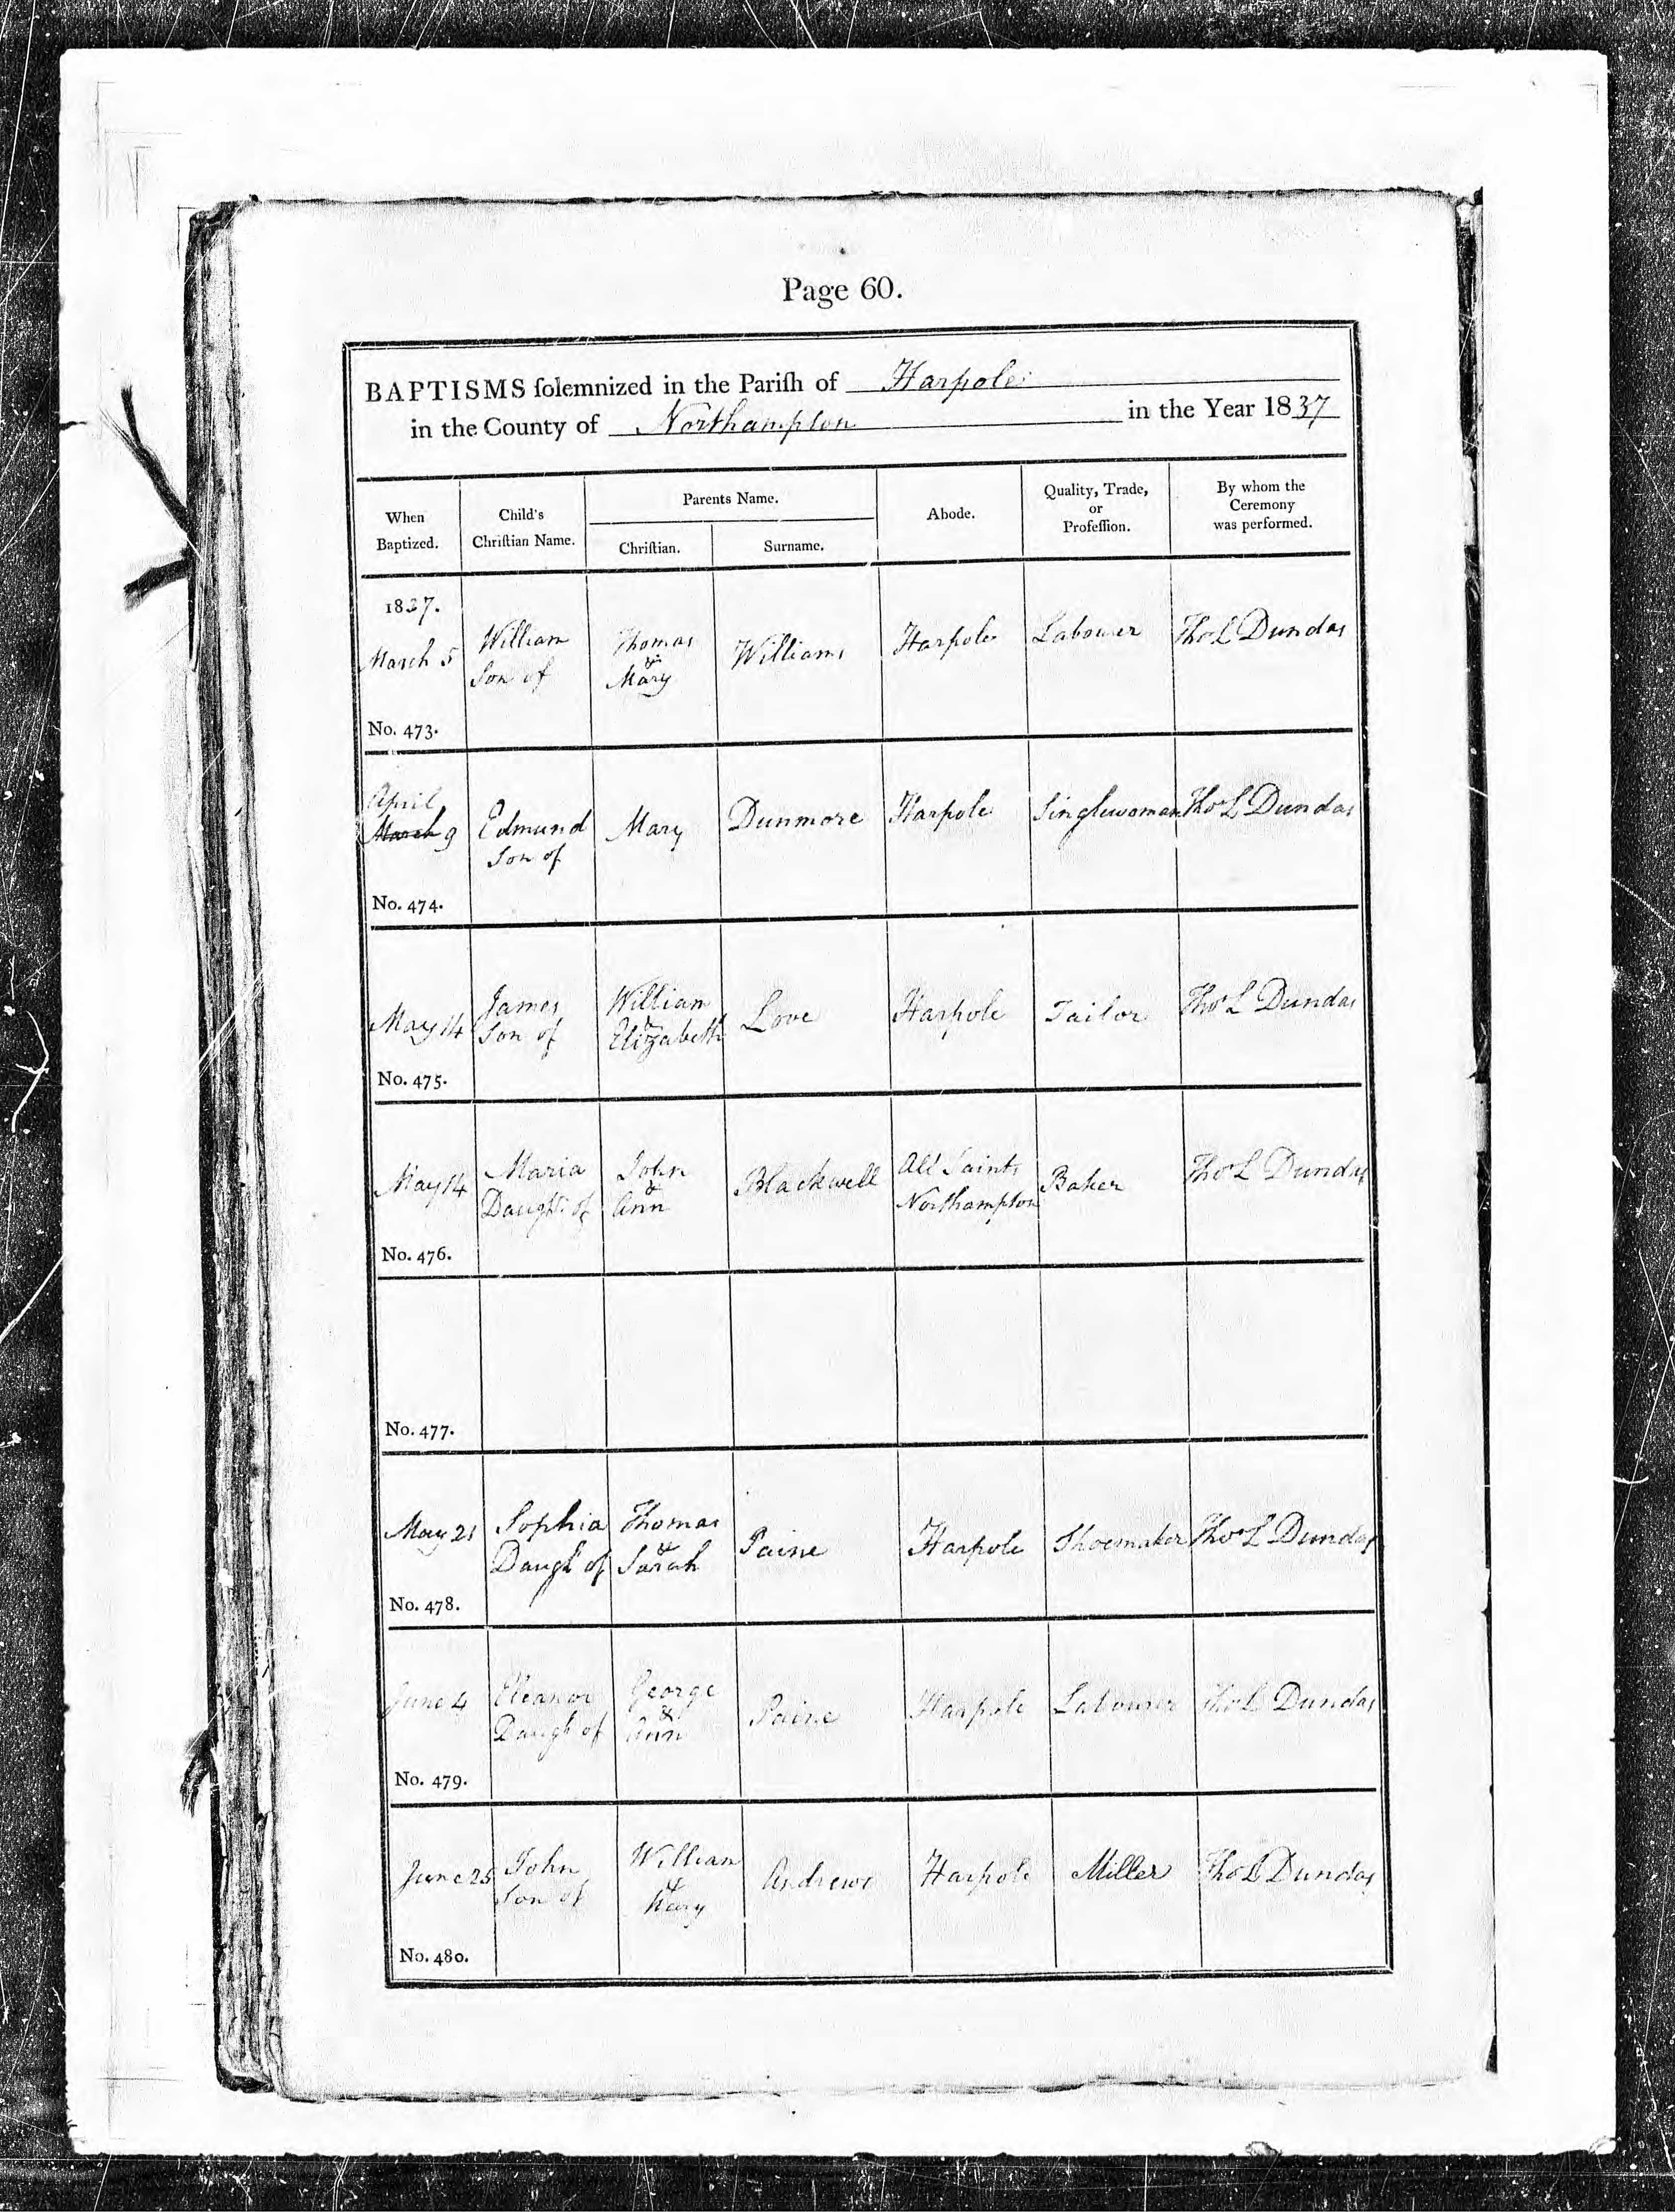 Page 60.
BAPTISMS ſolemnized in the Pariſh of Harpole
in the County of Northampton in the Year 1837
When
Baptized.
Child's
Chriſtian Name.
Parents Name.
Chriſtian.
Surname.
Abode.
Quality, Trade,
or
Profeſſion.
By whom the
Ceremony
was performed.
1837.
March 5
No. 473.
William
Son of
Thomas
&
Mary
Williams
Harpole
Labourer
Thos L Dundas
April
March 9
No. 474.
Edmund
Son of
Mary
Dunmore
Harpole
Singlewoman
Thos L Dundas
May 14
No. 475.
James
Son of
William
&
Elizabeth
Love
Harpole
Tailor
Thos L Dundas
May 14
No. 476.
Maria
Daugh: of
John
&
Ann
Blackwell
All Saints
Northampton
Baker
Thos L Dundas
No. 477.
May 21
No. 478.
Sophia
Daugh of
Thomas
&
Sarah
Paine
Harpole
Shoemaker
Thos L Dundas
June 4
No. 479.
Eleanor
Daugh of
George
&
Ann
Paine
Harpole
Labourer
Thos L Dundas
June 25
No. 480.
John
Son of
William
&
Mary
Andrews
Harpole
Miller
Thos L Dundas